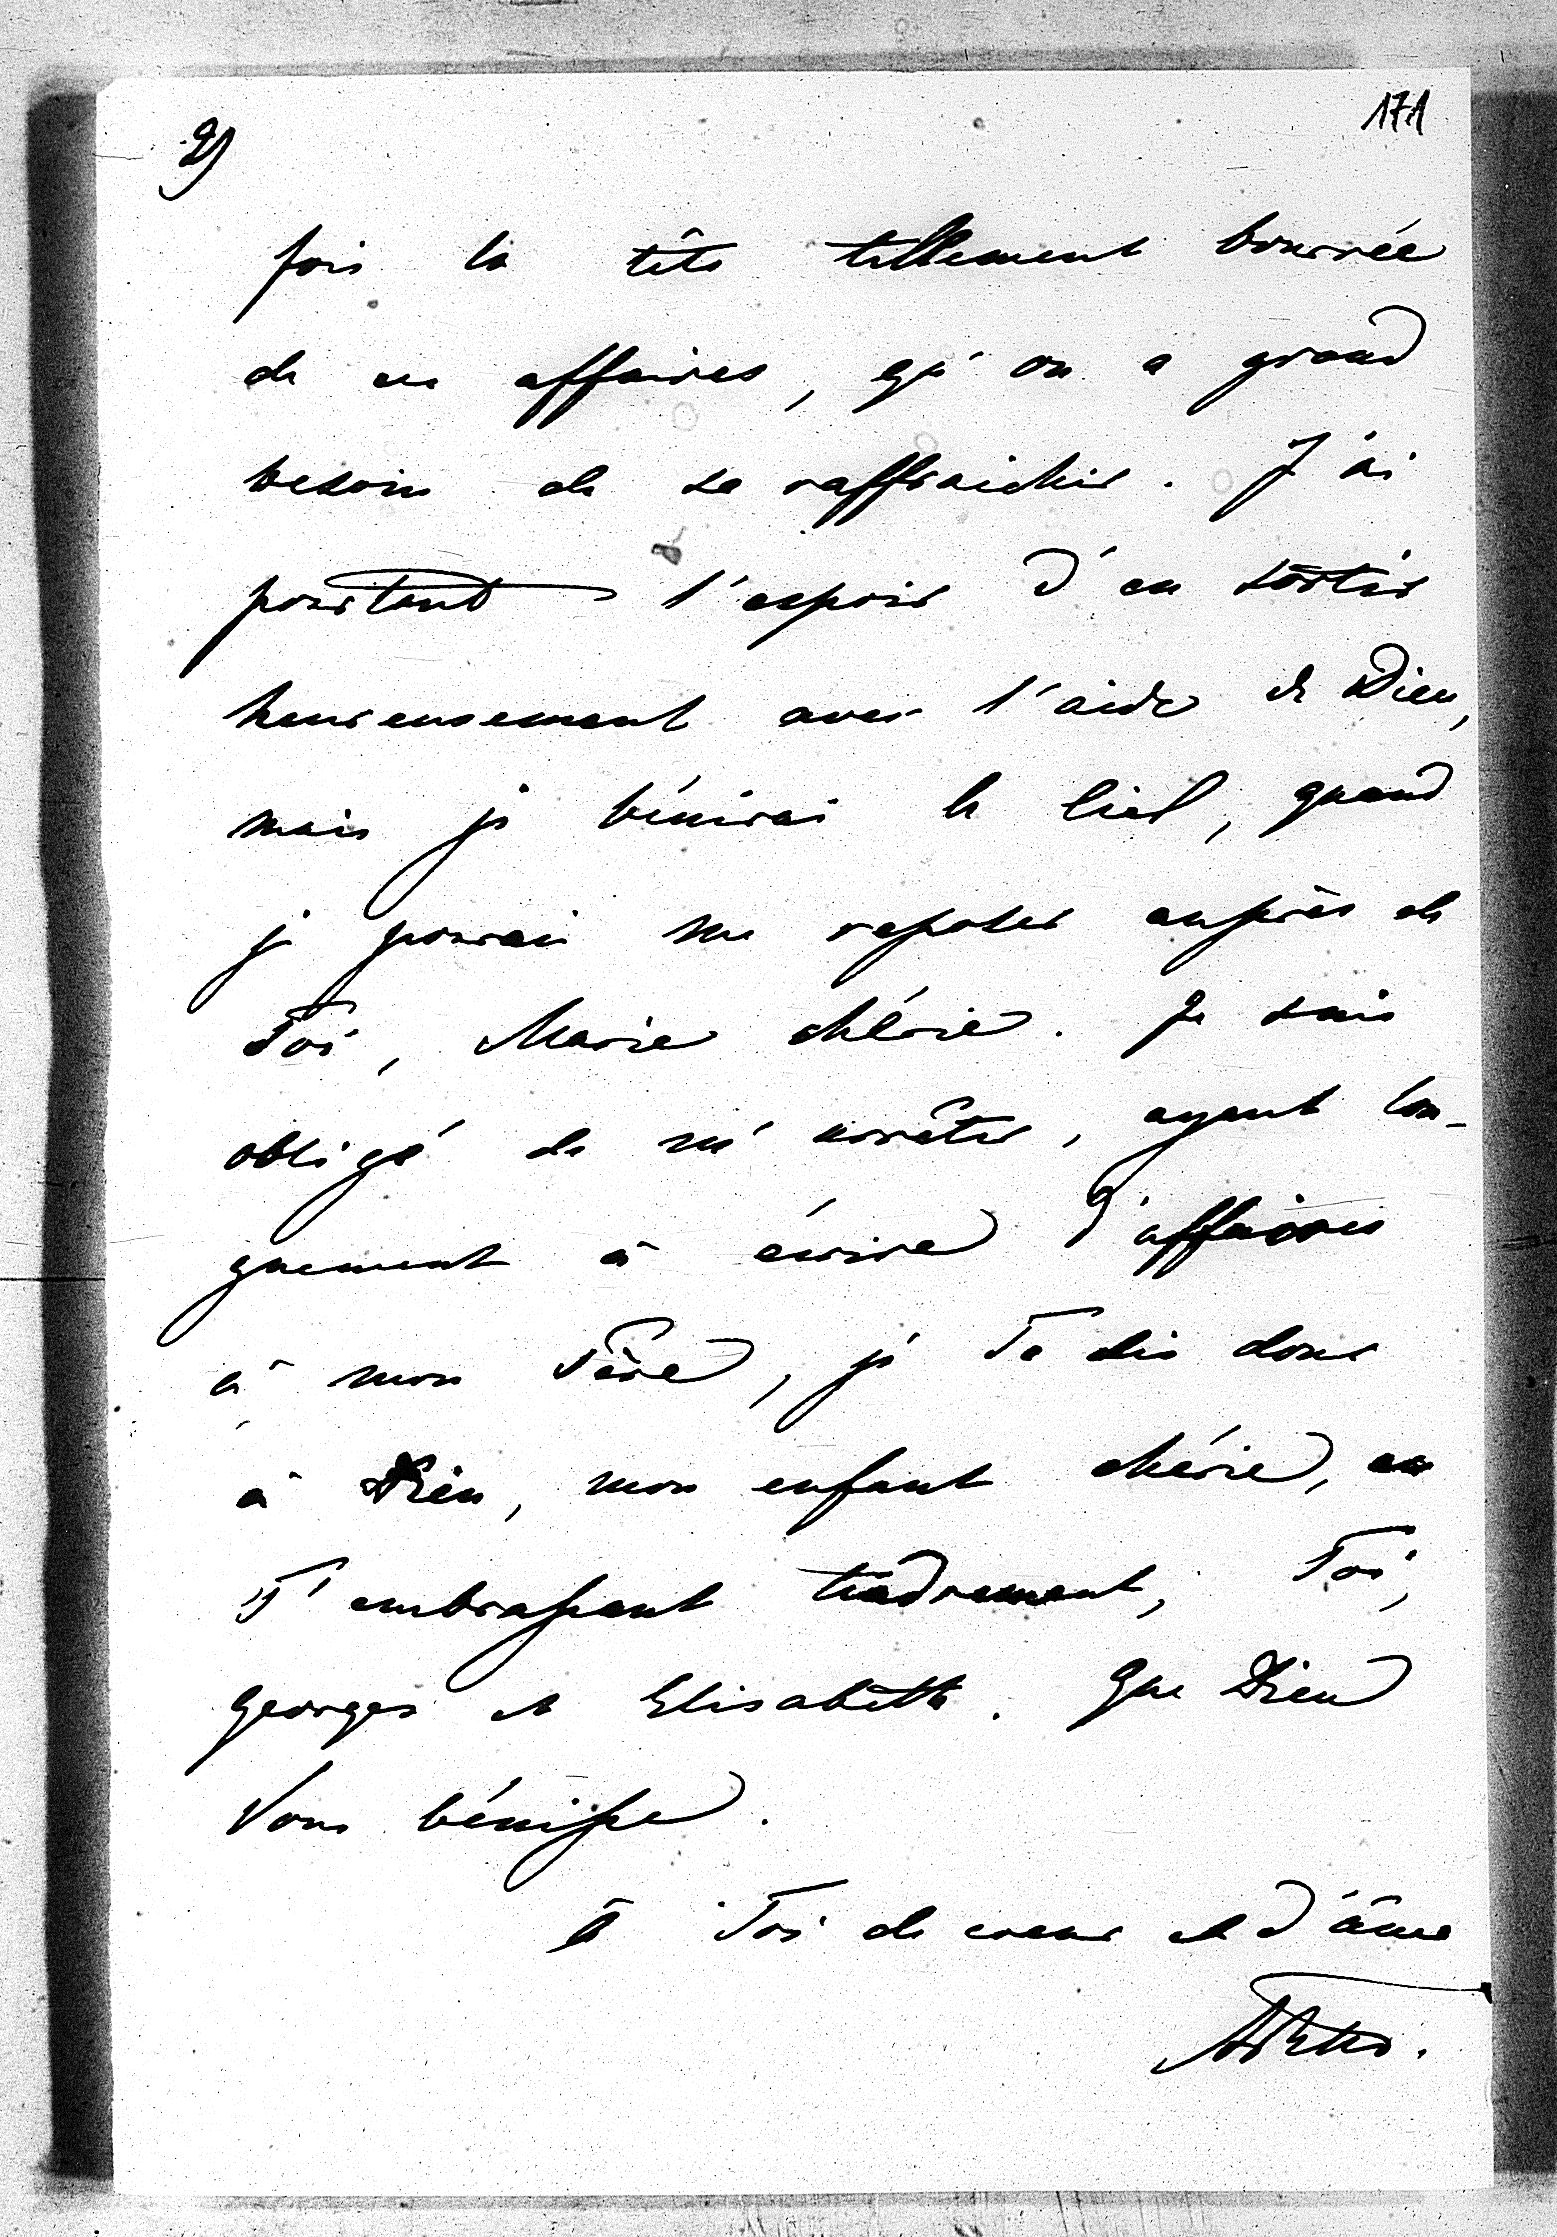 2)
171
fois la tête tellement bourrée
de ces affaires, qu'on a grand
besoin de se raffraichir. J'ai
pourtant l'espoir d'en sortir
heureusement avec l'aide de Dieu,
mais je bénirai le Ciel, quand
je pourai me reposer auprès de
Toi, Marie chérie. Je suis
obligé de m'arrêter, ayant lon-
guement à écrire d'affaires
à mon Père, je Te dis donc
à Dieu, mon enfant chérie, en
T'embrassant tendrement, Toi,
Georges et Elisabeth. Que Dieu
Vous bénisse.
à Toi de coeur et d'âme